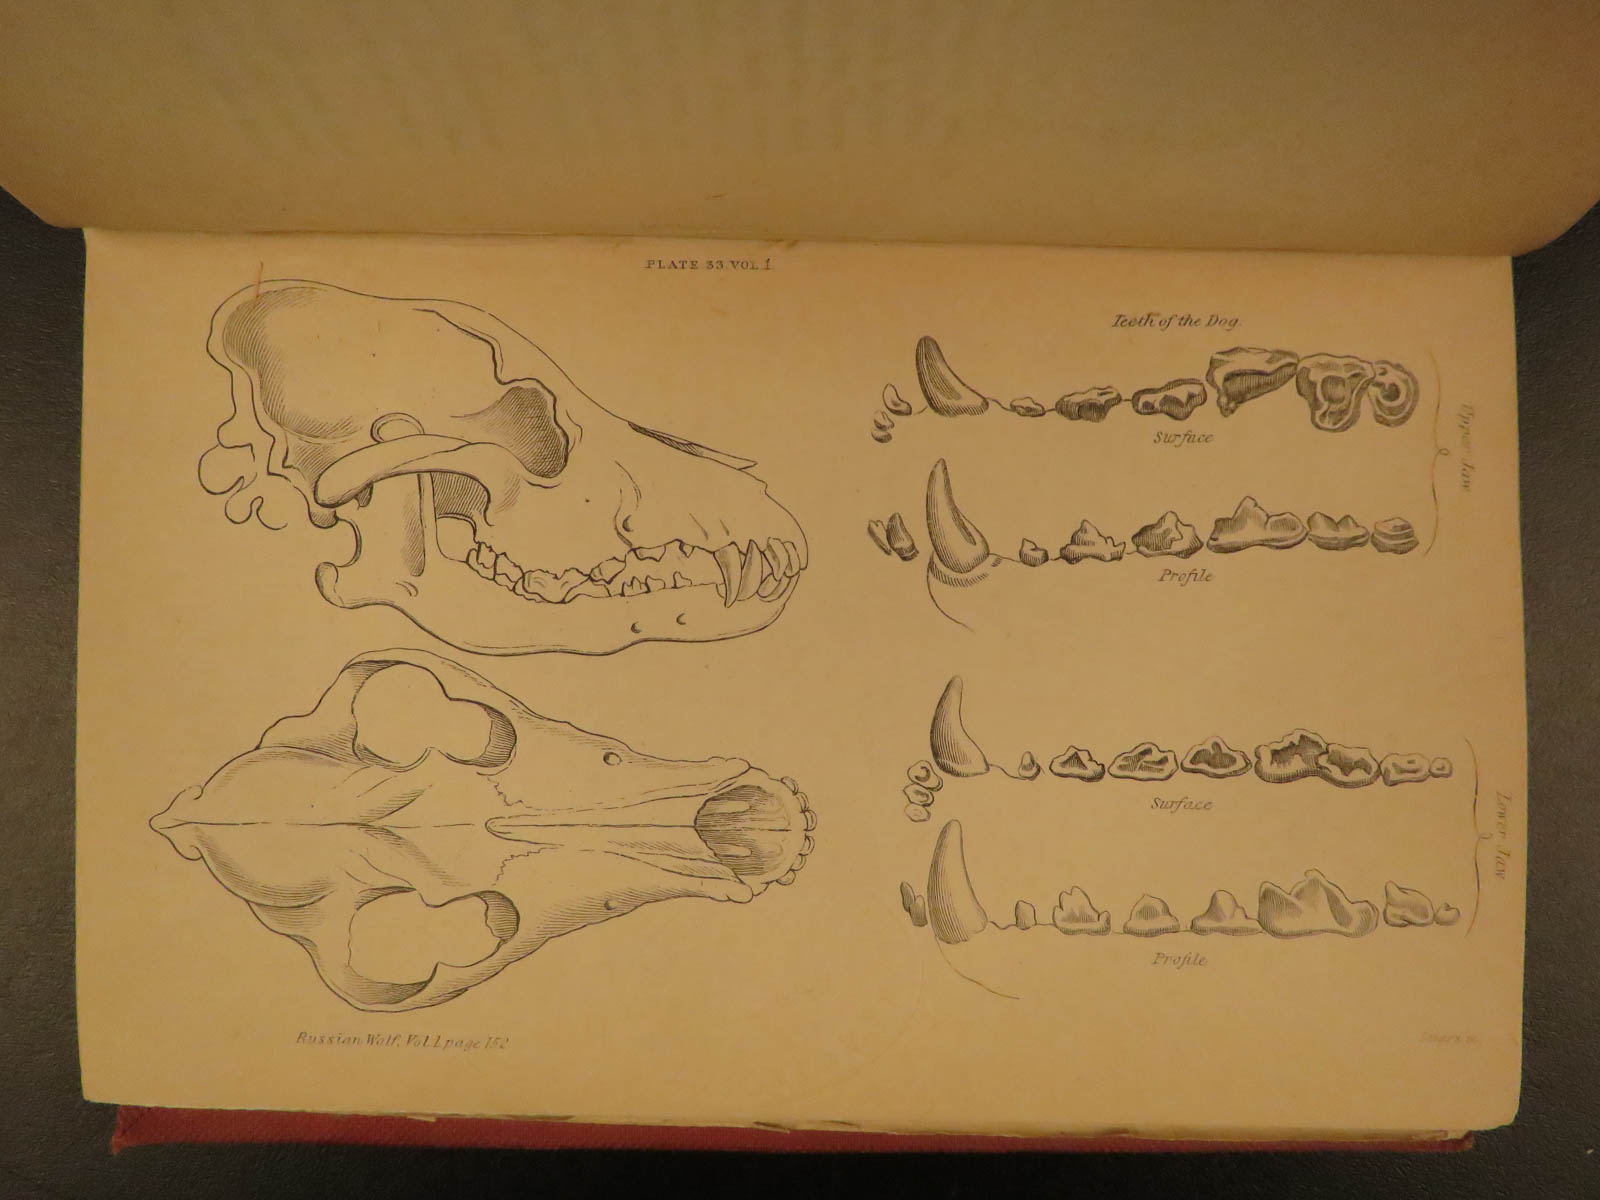 PLATE 33. VOL 1.
Teeth of the Dog.
Surface
Profile
Upper Jaw
Surface
Profile
Lower Jaw
Russian Wolf, Vol. 1 page 152
Lizars sc.